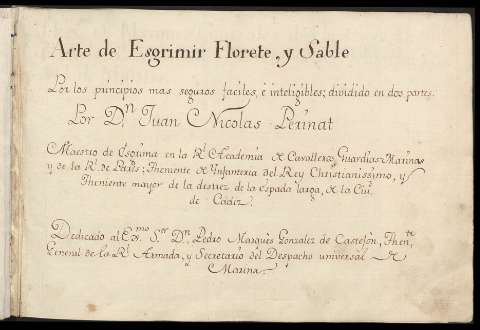 Arte de Esgrimir Florete, y Sable
Por los principios mas seguros faciles, è inteligibles; dividido en dos partes.
Por D.n Juan Nicolas Perinat
Maestro de Esgrima en la Rl. Academia de Cavalleros Guardias Marinas
y de la Rl. de Pages; Theniente de Ynfanteria del Rey Christianissimo, y
Theniente mayor de la destrez de la espada larga, de la Ciu.d
de Cadiz.
Dedicado al Ex.mo S.or Dn. Pedro Marquès Gonzalez de Castejòn, Then.te
General de la Rl. Armada, y Secretario del Despacho universal de
Marina.